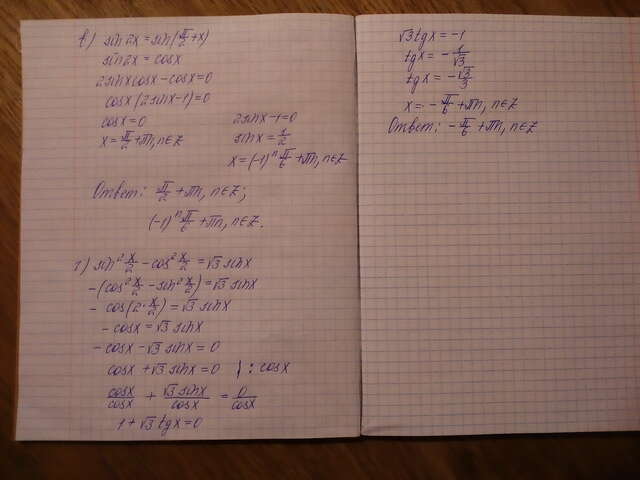 в) sin2x = sin(π/2 + x)
sin2x = cosx
2sinxcosx − cosx = 0
cosx(2sinx − 1) = 0
cosx = 0    2sinx − 1 = 0
x = π/2 + πn, n∈Z    sinx = 1/2
x = (−1)ⁿ π/6 + πn, n∈Z
Ответ: π/2 + πn, n∈Z;
(−1)ⁿ π/6 + πn, n∈Z.
г) sin² x/2 − cos² x/2 = √3 sinx
−(cos² x/2 − sin² x/2) = √3 sinx
− cos(2· x/2) = √3 sinx
− cosx = √3 sinx
− cosx − √3 sinx = 0
cosx + √3 sinx = 0 | : cosx
cosx/cosx + √3 sinx/cosx = 0/cosx
1 + √3 tgx = 0
√3 tgx = −1
tgx = − 1/√3
tgx = − √3/3
x = − π/6 + πn, n∈Z
Ответ: − π/6 + πn, n∈Z